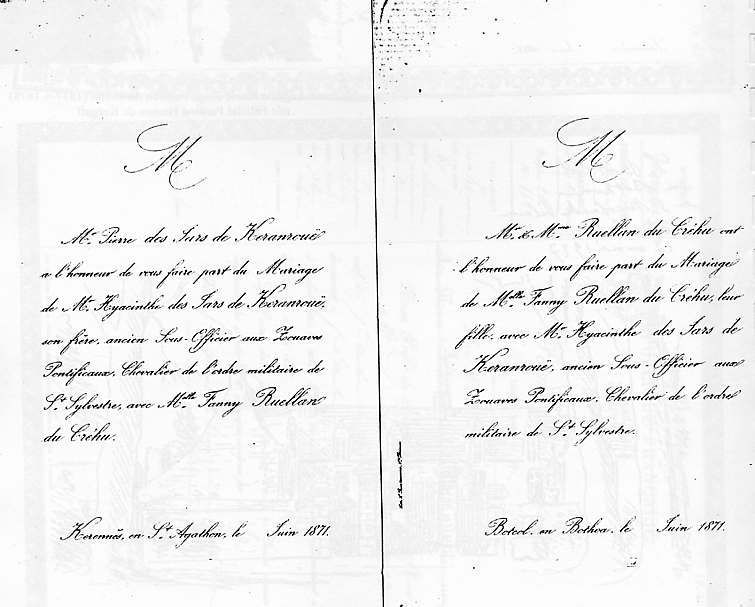 M
Mr. Pierre des Jars de Keranrouë
a l'honneur de vous faire part du Mariage
de Mr. Hyacinthe des Jars de Keranrouë,
son frère, ancien Sous-Officier aux Zouaves
Pontificaux, Chevalier de l'ordre militaire de
St. Sylvestre, avec Melle Fanny Ruellan
du Créhu.
Kerennës, en St. Agathon, le Juin 1871.
M
Mr. & Mme Ruellan du Créhu ont
l'honneur de vous faire part du Mariage
de Melle Fanny Ruellan du Créhu, leur
fille, avec Mr. Hyacinthe des Jars de
Keranrouë, ancien Sous-Officier aux
Zouaves Pontificaux, Chevalier de l'ordre
militaire de St. Sylvestre.
Botcol, en Bothoa, le Juin 1871.